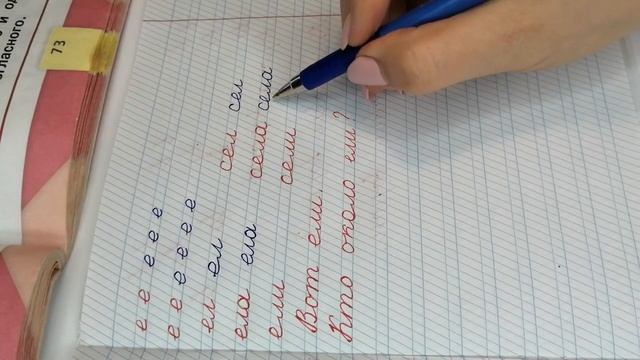 73
огласного.
е е е е е
е е е е е е
ел ел сел сел
ела ела села села
ели сели
Вот ели.
Кто около ели?